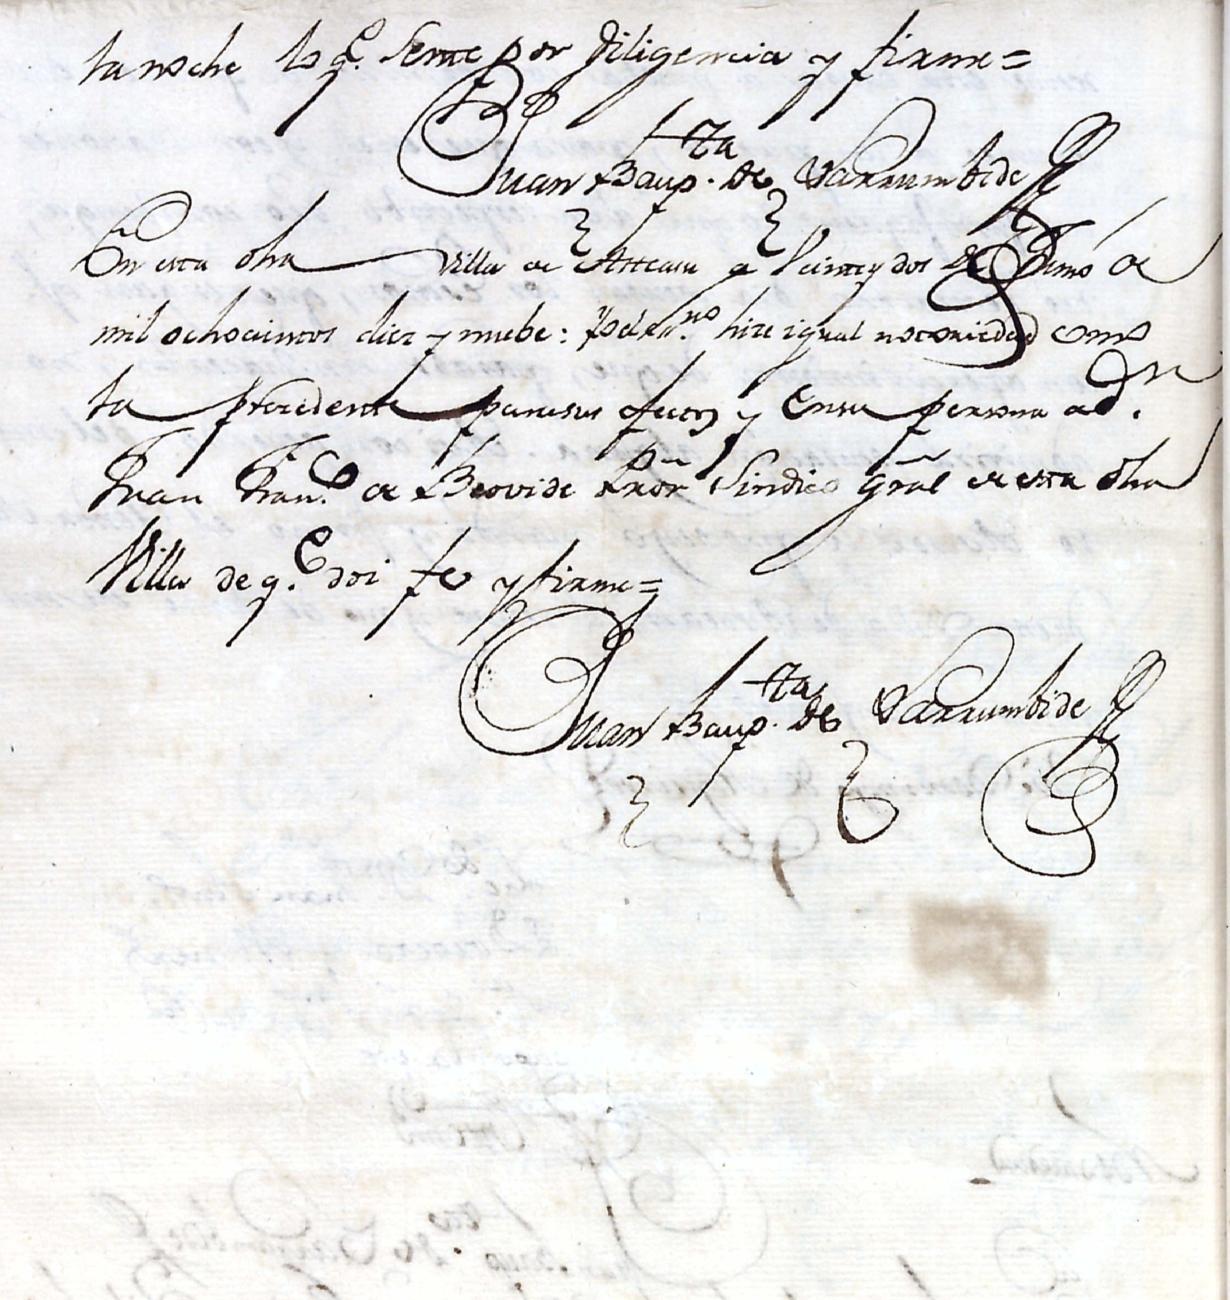 la noche lo q.e sente por diligencia y firme =
Juan Baup.ta de Sarrumbide
En esta dha Villa de Asteasu a Veinte y dos de de
mil ochocientos diez y nuebe: Yo el es.no hice igual notoriedad como
la precedente para sus efectos y en su persona a D.n
Juan Fran.co de Beovide Pror Sindico Gral de esta dha
Villa de q.e doi fe y firme =
Juan Baup.ta de Sarrumbide